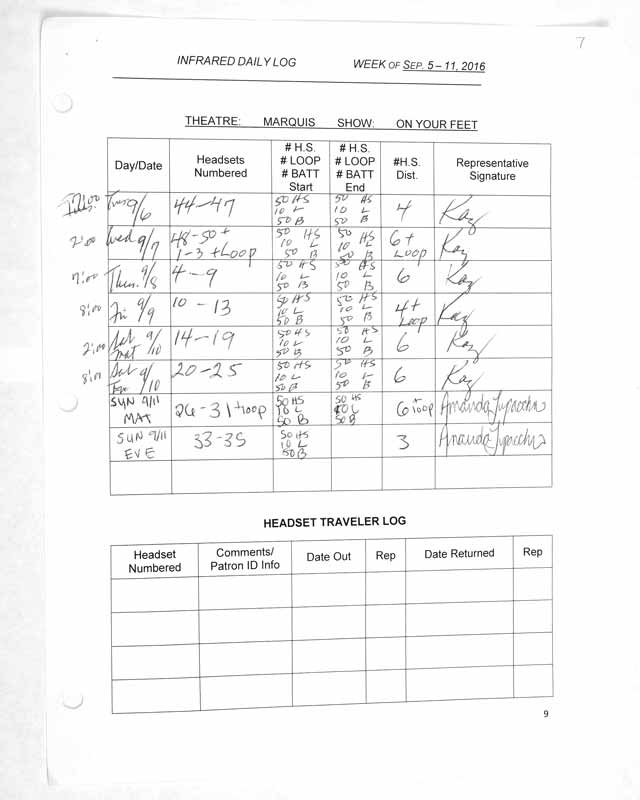 7
INFRARED DAILY LOG WEEK OF SEP. 5 – 11, 2016
THEATRE: MARQUIS SHOW: ON YOUR FEET
Day/Date Headsets Numbered # H.S. # LOOP # BATT Start # H.S. # LOOP # BATT End #H.S. Dist. Representative Signature
7:00 Tues 9/6 44-47 50 HS 10 L 50 B 50 HS 10 L 50 B 4 Kaz
2:00 Wed 9/7 48-50 + 1-3 + Loop 50 HS 10 L 50 B 50 HS 10 L 50 B 6 + Loop Kaz
7:00 Thu. 9/8 4-9 50 HS 10 L 50 B 50 HS 10 L 50 B 6 Kaz
8:00 Fri 9/9 10-13 50 HS 10 L 50 B 50 HS 10 L 50 B 4 + Loop Kaz
2:00 Sat mat 9/10 14-19 50 HS 10 L 50 B 50 HS 10 L 50 B 6 Kaz
8:00 Sat 9/10 20-25 50 HS 10 L 50 B 50 HS 10 L 50 B 6 Kaz
SUN 9/11 MAT 26-31 + loop 50 HS 10 L 50 B 50 HS 10 L 50 B 6 + loop Amanda
SUN 9/11 EVE 33-35 50 HS 10 L 50 B 3 Amanda
HEADSET TRAVELER LOG
Headset Numbered Comments/ Patron ID Info Date Out Rep Date Returned Rep
9